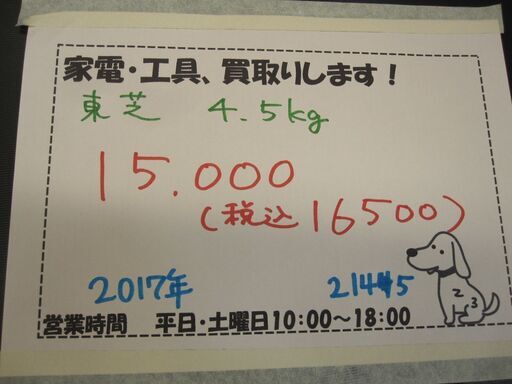 家電・工具、買取りします!
東芝 4.5kg
15.000
(税込16500)
2017年 21445
2 3
営業時間 平日・土曜日10:00~18:00